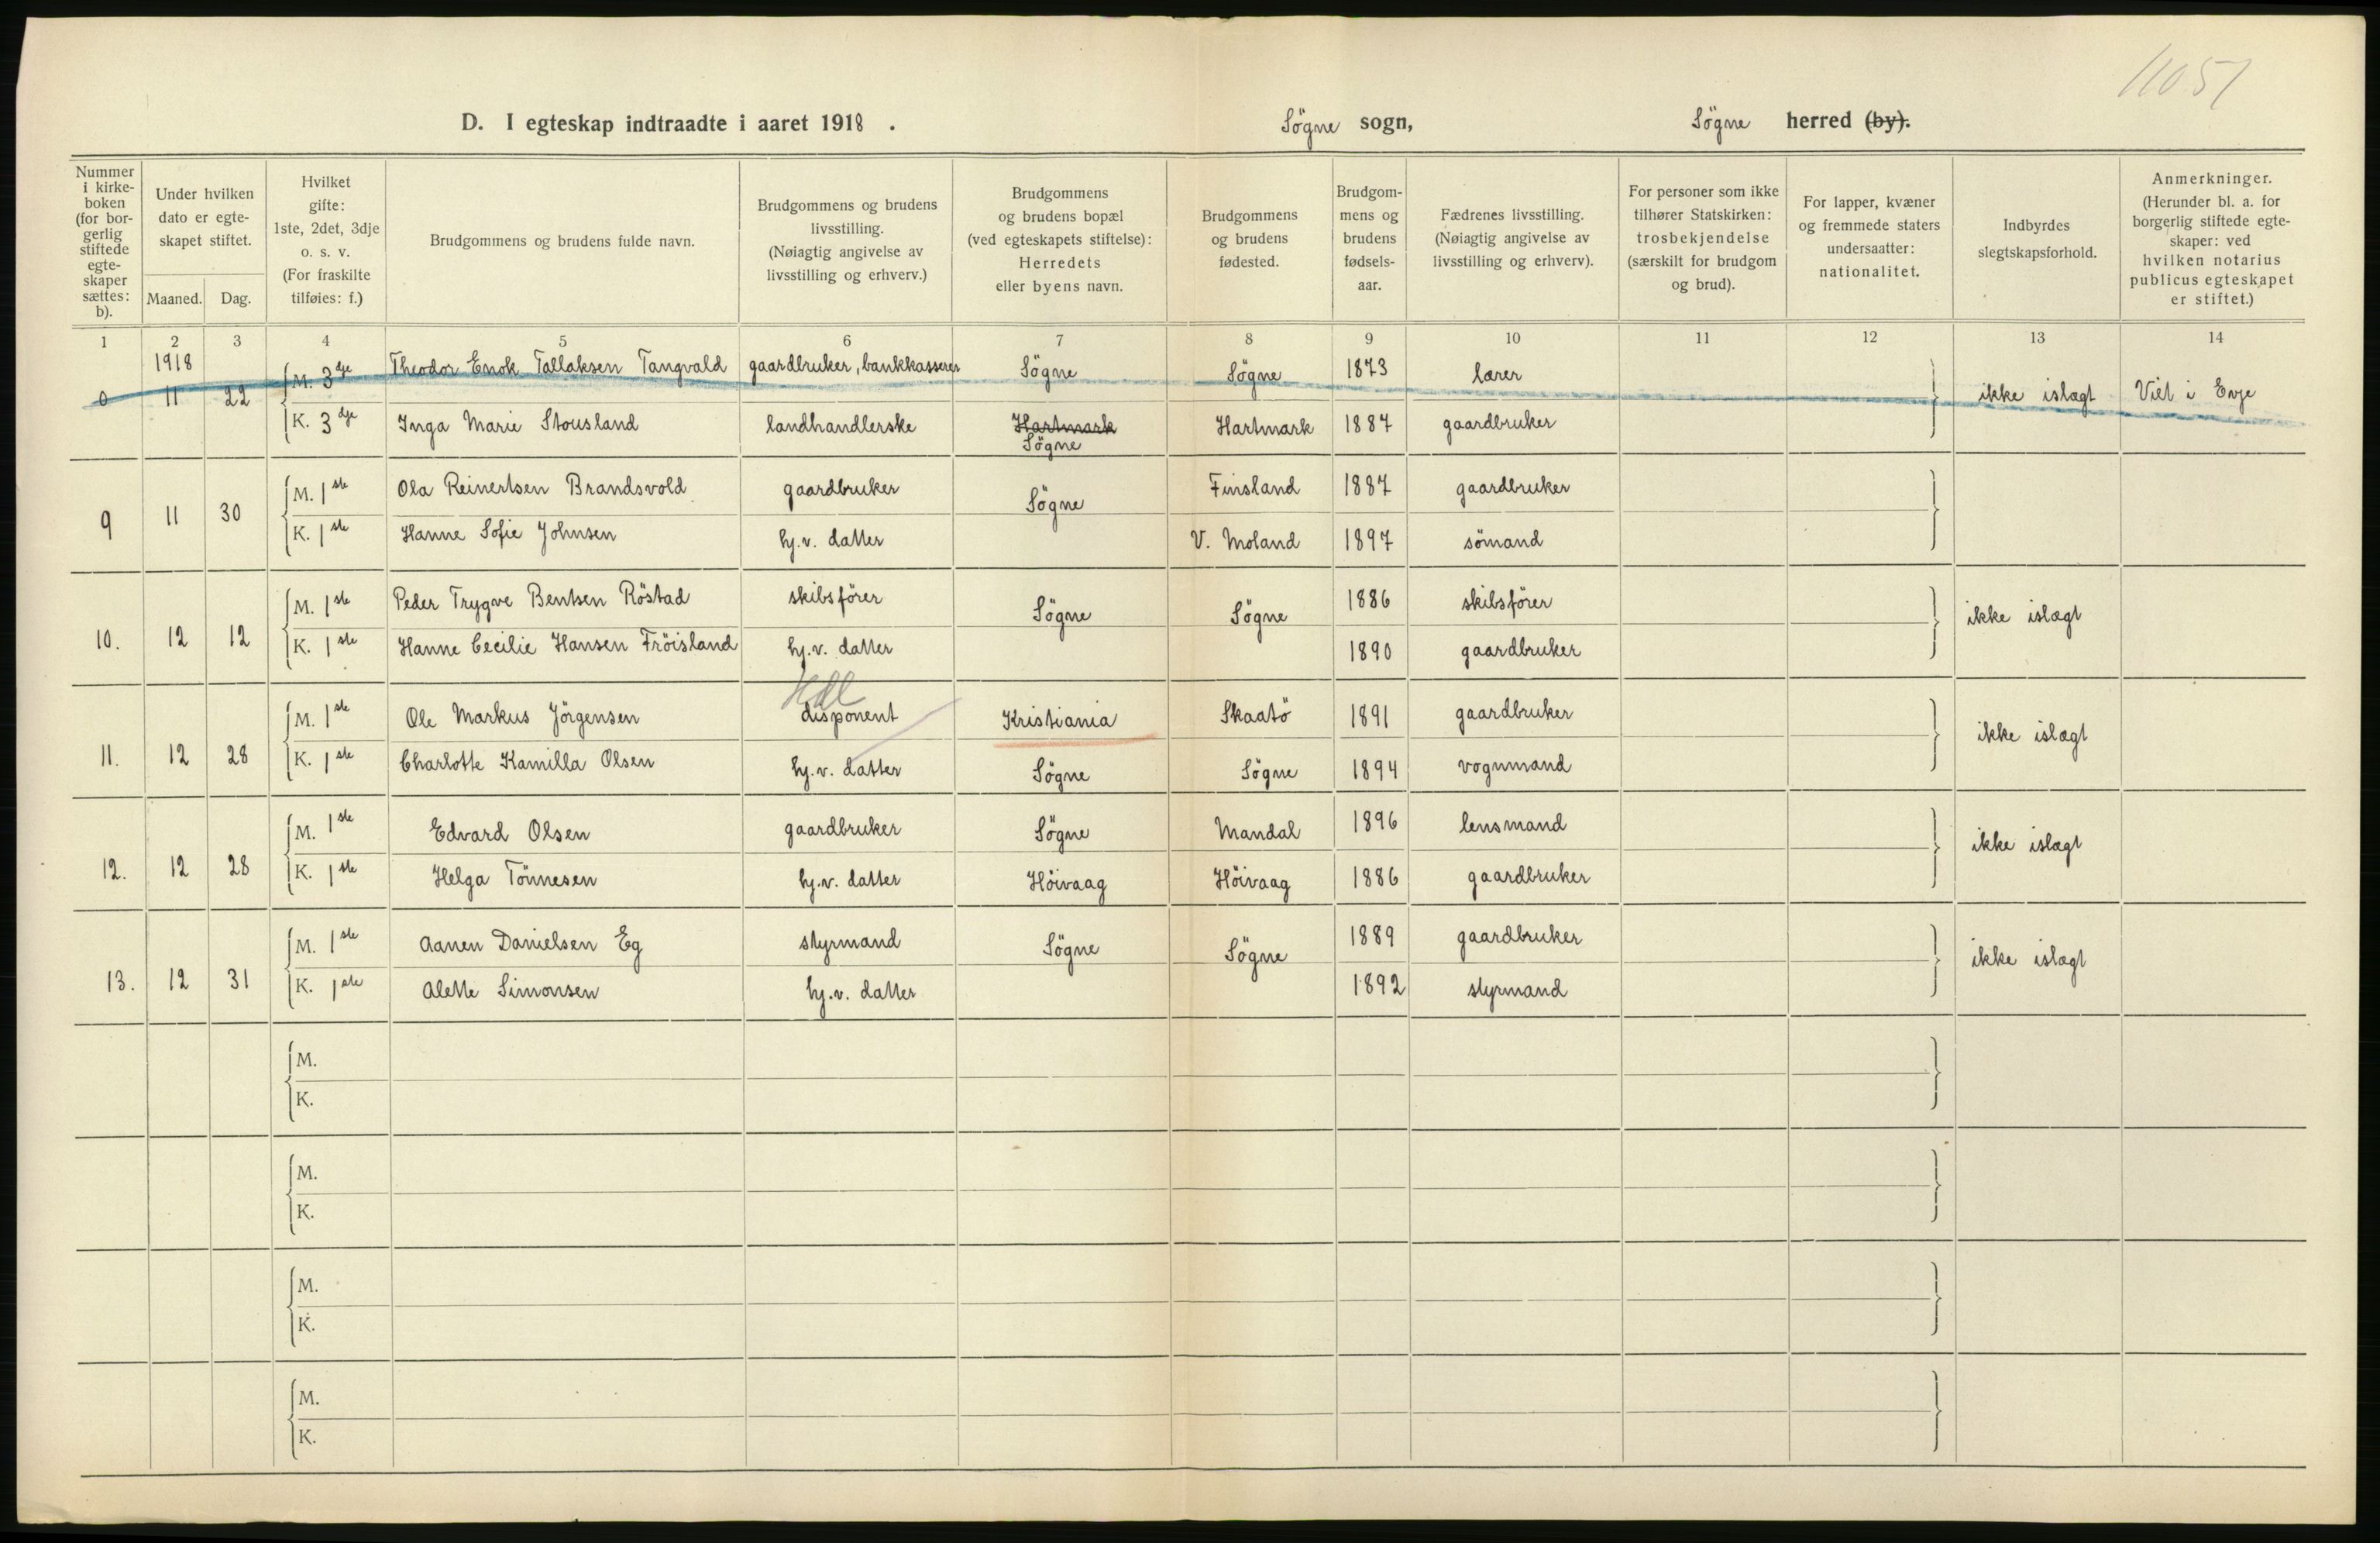 11051
D. I egteskap indtraadte i aaret 1918 . Søgne sogn, Søgne herred (by).
Nummer i kirke-boken (for bor-gerlig stiftede egte-skaper sættes: b).
Under hvilken dato er egte-skapet stiftet.
Maaned. Dag.
Hvilket gifte: 1ste, 2det, 3dje o. s. v. (For fraskilte tilføies: f.)
Brudgommens og brudens fulde navn.
Brudgommens og brudens livsstilling. (Nøiagtig angivelse av livsstilling og erhverv.)
Brudgommens og brudens bopæl (ved egteskapets stiftelse): Herredets eller byens navn.
Brudgommens og brudens fødested.
Brudgom-mens og brudens fødsels-aar.
Fædrenes livsstilling. (Nøiagtig angivelse av livsstilling og erhverv).
For personer som ikke tilhører Statskirken: trosbekjendelse (særskilt for brudgom og brud).
For lapper, kvæner og fremmede staters undersaatter: nationalitet.
Indbyrdes slegtskapsforhold.
Anmerkninger. (Herunder bl. a. for borgerlig stiftede egte-skaper: ved hvilken notarius publicus egteskapet er stiftet.)
1 2 3 4 5 6 7 8 9 10 11 12 13 14
1918
0 11 22 M. 3dje Theodor Enok Tallaksen Tangvald gaardbruker, bankkasserer Søgne Søgne 1873 lærer ikke islægt Viet i Evje
K. 3dje Inga Marie Stousland landhandlerske Hartmark Søgne Hartmark 1887 gaardbruker
9 11 30 M. 1ste Ola Reinertsen Brandsvold gaardbruker Søgne Finsland 1887 gaardbruker
K. 1ste Hanne Sofie Johnsen hj.v. datter V. Moland 1897 sömand
10. 12 12 M. 1ste Peder Trygve Bentsen Röstad skibsförer Søgne Søgne 1886 skibsförer ikke islægt
K. 1ste Hanne Cecilie Hansen Fröisland hj.v. datter 1890 gaardbruker
Hdl
11. 12 28 M. 1ste Ole Markus Jörgensen disponent Kristiania Skaatö 1891 gaardbruker ikke islægt
K. 1ste Charlotte Kamilla Olsen hj.v. datter Søgne Søgne 1894 vognmand
12. 12 28 M. 1ste Edvard Olsen gaardbruker Søgne Mandal 1896 lensmand ikke islægt
K. 1ste Helga Tönnesen hj.v. datter Höivaag Höivaag 1886 gaardbruker
13. 12 31 M. 1ste Aanen Danielsen Eg styrmand Søgne Søgne 1889 gaardbruker ikke islægt
K. 1ste Alette Simonsen hj.v. datter 1892 styrmand
M.
K.
M.
K.
M.
K.
M.
K.